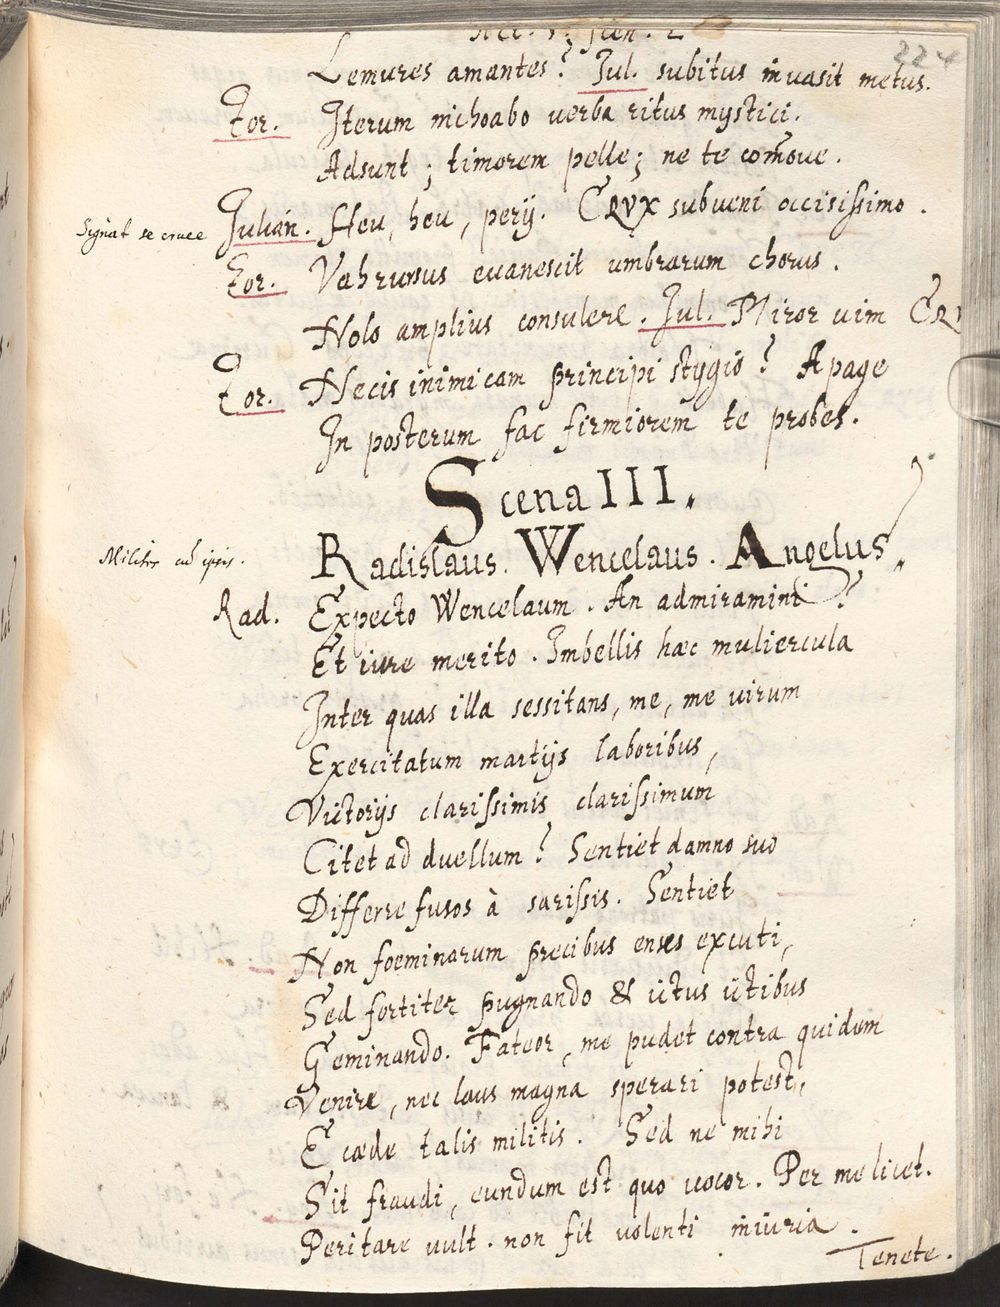 Act. 1; scen. 2
224
Lemures amantes? Jul. subitus invasit metus.
For. Iterum inchoabo verba ritus mystici.
Adsunt; timorem pelle; ne te com̃oue.
Signat se cruce Julian. Heu, heu, perij. CRVX subueni occisissimo.
For. Vah rursus euanescit umbrarum chorus.
Nolo amplius consulere. Jul. Miror uim CRV
For. Necis inimicam principi stygio? Apage
In posterum fac firmiorem te probes.
Scena III.
Radislaus. Wencelaus. Angelus.
Rad. Expecto Wencelaum. An admiramini?
Et iure merito. Imbellis hæc muliercula
Inter quas illa sessitans, me, me uirum
Exercitatum martijs laboribus,
Victorijs clarissimis clarissimum
Citet ad duellum? Sentiet damno suo
Differre fusos à sarissis. Sentiet
Non foeminarum precibus enses excuti,
Sed fortiter pugnando & ictus ictibus
Geminando. Fateor, me pudet contra quidem
Venire, nec laus magna sperari potest,
E cæde talis militis. Sed ne mihi
Sit fraudi, eundum est quo uocor. Per me licet.
Peritare uult. non fit uolenti iniuria.
Tenete.